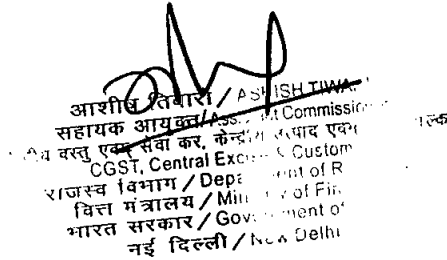 आशीष तिवारी / ASHISH TIWA
सहायक आयुक्त/Ass t Commissio
वस्तु एवम् सेवा कर, केन्द्रीय उत्पाद एवम
CGST, Central Exc Custom
राजस्व विभाग / Depa ent of R
वित्त मंत्रालय / Min y of Fin
भारत सरकार / Gov nment of
नई दिल्ली / New Delhi